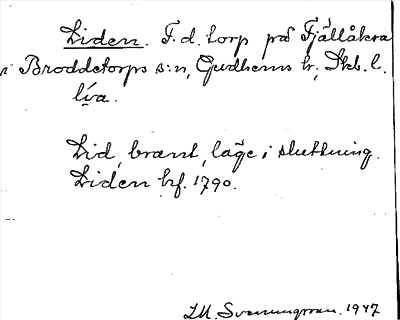 Liden. F. d. torp på Fjällåkra
i Broddetorps s:n, Gudhems hr, Skb. l.
lía.
Lid, brant, läge i sluttning.
Liden hf. 1790.
I.M. Svenungsson. 1947